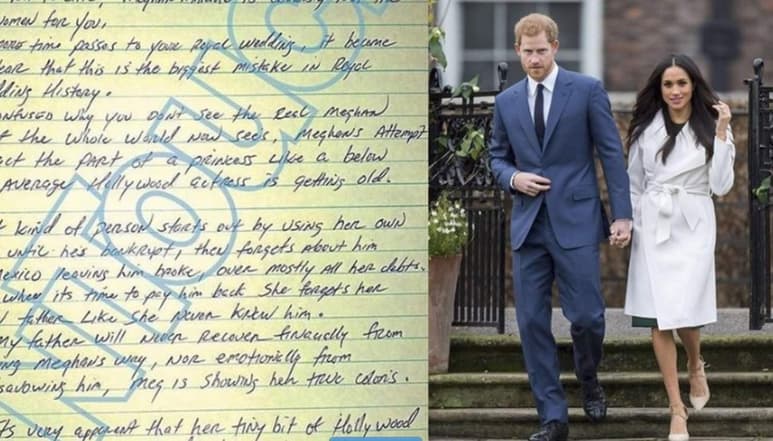 Meghan Markle is clearly not the
women for you,
more time passes to your Royal wedding, it became
ear that this is the biggest mistake in Royal
dding History.
onfused why you don't see the real Meghan
t the whole world now sees, Meghans Attempt
act the part of a princess like a below
Average Hollywood actress is getting old.
t kind of person starts out by using her own
until he's bankrupt, then forgets about him
Mexico leaving him broke, over mostly all her debts.
when its time to pay him back she forgets her
father like she never knew him.
My father will never recover financially from
ing meghans way, nor emotionally from
savowing him, meg is showing her true colors.
It's very apparent that her tiny bit of Hollywood